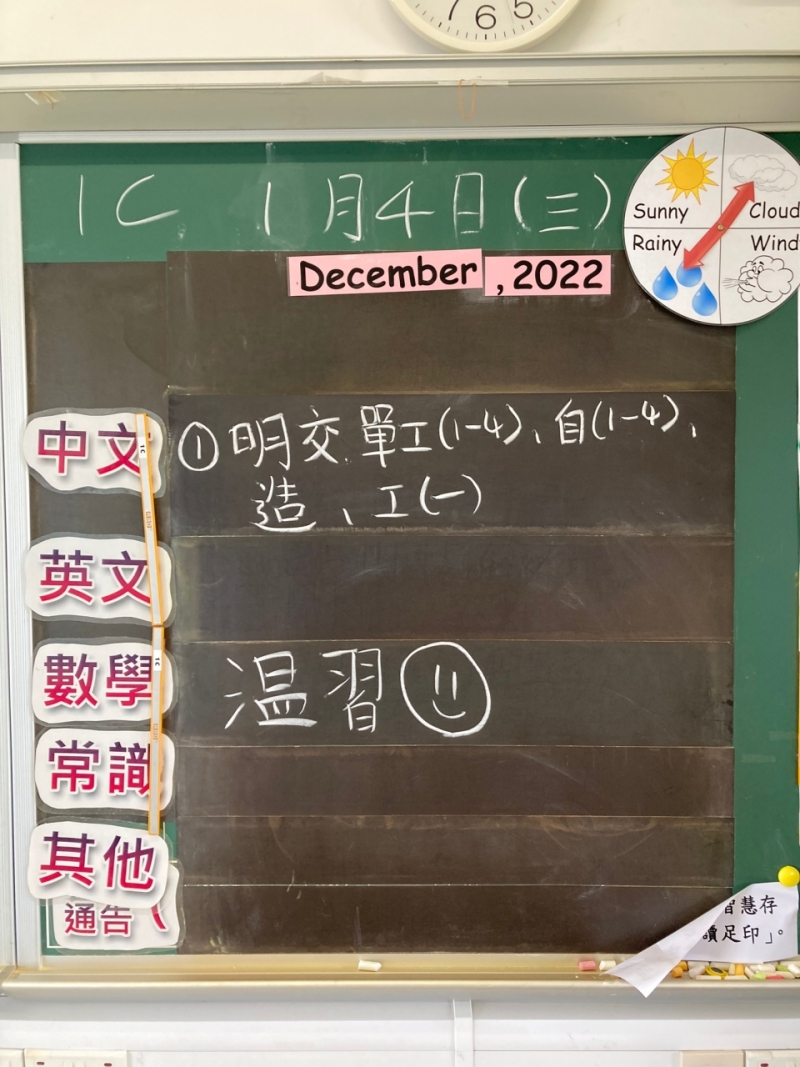 7 6 5
1C 1月4日(三)
December , 2022
Sunny Cloud
Rainy Wind
中文 ①明交單工(1-4)、自(1-4)、
造、工(一)
英文
數學 温習
常識
其他
通告(
智慧存
讀足印」。